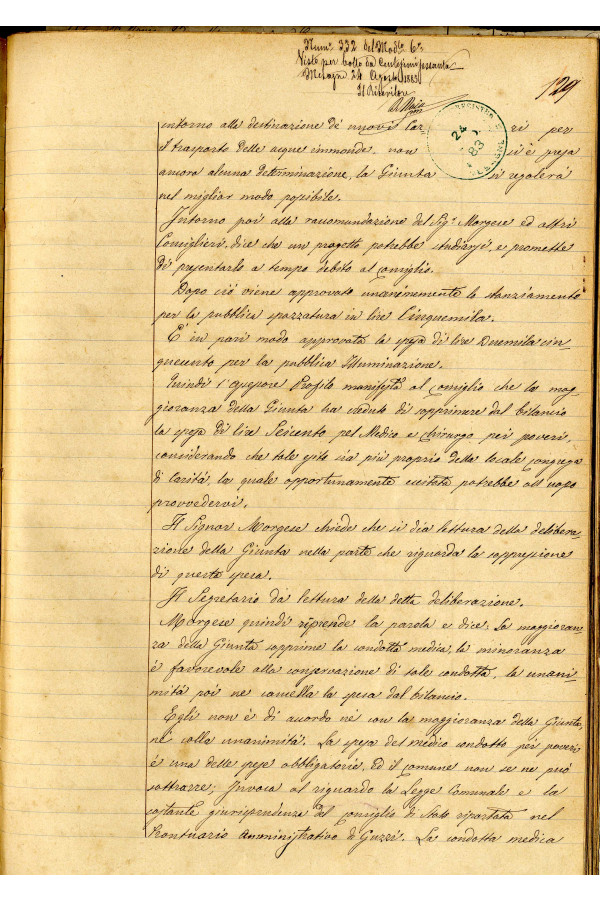 Num. 332 del Mod. 6°
Visto per bollo da Centesimi sessanta
Mesagne 24 Agosto 1883
Il Ricevitore
129
REGISTR
24
83
intorno alla destinazione de' nuovi Car ri per
il trasporto delle acque immonde, non si è presa
ancora alcuna determinazione, la Giunta regolerà
nel miglior modo possibile.
Intorno poi alla raccomandazione del Sig. Morgese ed altri
Consiglieri, dice che un progetto potrebbe studiarsi, e promette
di presentarlo a tempo debito al Consiglio.
Dopo ciò viene approvato unanimemente lo stanziamento
per la pubblica spazzatura in lire Cinquemila.
È in pari modo approvata la spesa di lire Duemila cin-
quecento per la pubblica Illuminazione.
Quindi l'assessore Profilo manifesta al Consiglio che la mag
gioranza della Giunta ha creduto di sopprimere dal bilancio
la spesa di lire Seicento pel Medico e Chirurgo pei poveri,
considerando che tale esito sia più proprio della locale Congrega
di Carità, la quale opportunamente eccitata potrebbe all'uopo
provvedervi.
Il Signor Morgese chiede che si dia lettura della delibera
zione della Giunta nella parte che riguarda la soppressione
di questa spesa.
Il Segretario da lettura della detta deliberazione.
Morgese quindi riprende la parola e dice. La maggioran
za della Giunta sopprime la condotta medica, la minoranza
è favorevole alla conservazione di tale condotta, la unani-
mità poi ne cancella la spesa dal bilancio.
Egli non è di accordo nè con la maggioranza della Giunta,
nè colla unanimità. La spesa del medico condotto per poveri
è una delle spese obbligatorie, ed il comune non se ne può
sottrarre; Invoca al riguardo la Legge Comunale e la
costante giurisprudenza del Consiglio di Stato riportata nel
Prontuario Amministrativo di Guzzi. La condotta medica